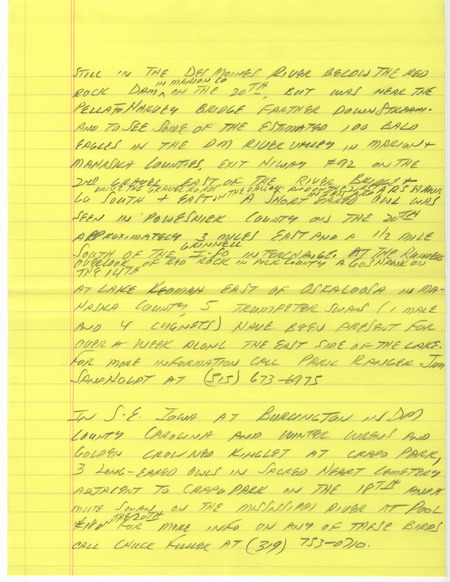 STILL IN THE DES MOINES RIVER BELOW THE RED
IN MARION CO
ROCK DAM ON THE 20TH, BUT WAS NEAR THE
PELLA TO HARVEY BRIDGE FARTHER DOWNSTREAM.
AND TO SEE SOME OF THE ESTIMATED 100 BALD
EAGLES IN THE DM RIVER VALLEY IN MARION +
MAHASKA COUNTIES, EXIT HIWAY #92 ON THE
2ND GRAVEL EAST OF THE RIVER BRIDGE +
DRIVE THE GRAVEL ROADS IN THE VALLEY AND
GO SOUTH + EAST IN A SHORT EARED OWL WAS
SEEN IN POWESHIEK COUNTY ON THE 20TH
APPROXIMATELY 3 MILES EAST AND A 1/2 MILE
GRINNELL
SOUTH OF THE I-80 INTERCHANGE. AT THE RUNNER
OVERLOOK OF RED ROCK IN POLK COUNTY A GOSHAWK ON
THE 14TH
AT LAKE KEOMAH EAST OF OSKALOOSA IN MA-
HASKA COUNTY, 5 TRUMPETER SWANS (1 MALE
AND 4 CYGNETS) HAVE BEEN PRESENT FOR
OVER A WEEK ALONG THE EAST SIDE OF THE LAKE.
FOR MORE INFORMATION CALL PARK RANGER JIM
SANDHOLDT AT (515) 673-6975
IN S.E. IOWA AT BURLINGTON IN DM
COUNTY CAROLINA AND WINTER WRENS AND
GOLDEN CROWNED KINGLET AT CRAPO PARK,
3 LONG-EARED OWLS IN SACRED HEART CEMETERY
ADJACENT TO CRAPO PARK ON THE 18TH AND A
MUTE SWAN ON THE MISSISSIPPI RIVER AT POOL
ON THE 20TH
#18 FOR MORE INFO ON ANY OF THESE BIRDS
CALL CHUCK FULLER AT (319) 753-0710.